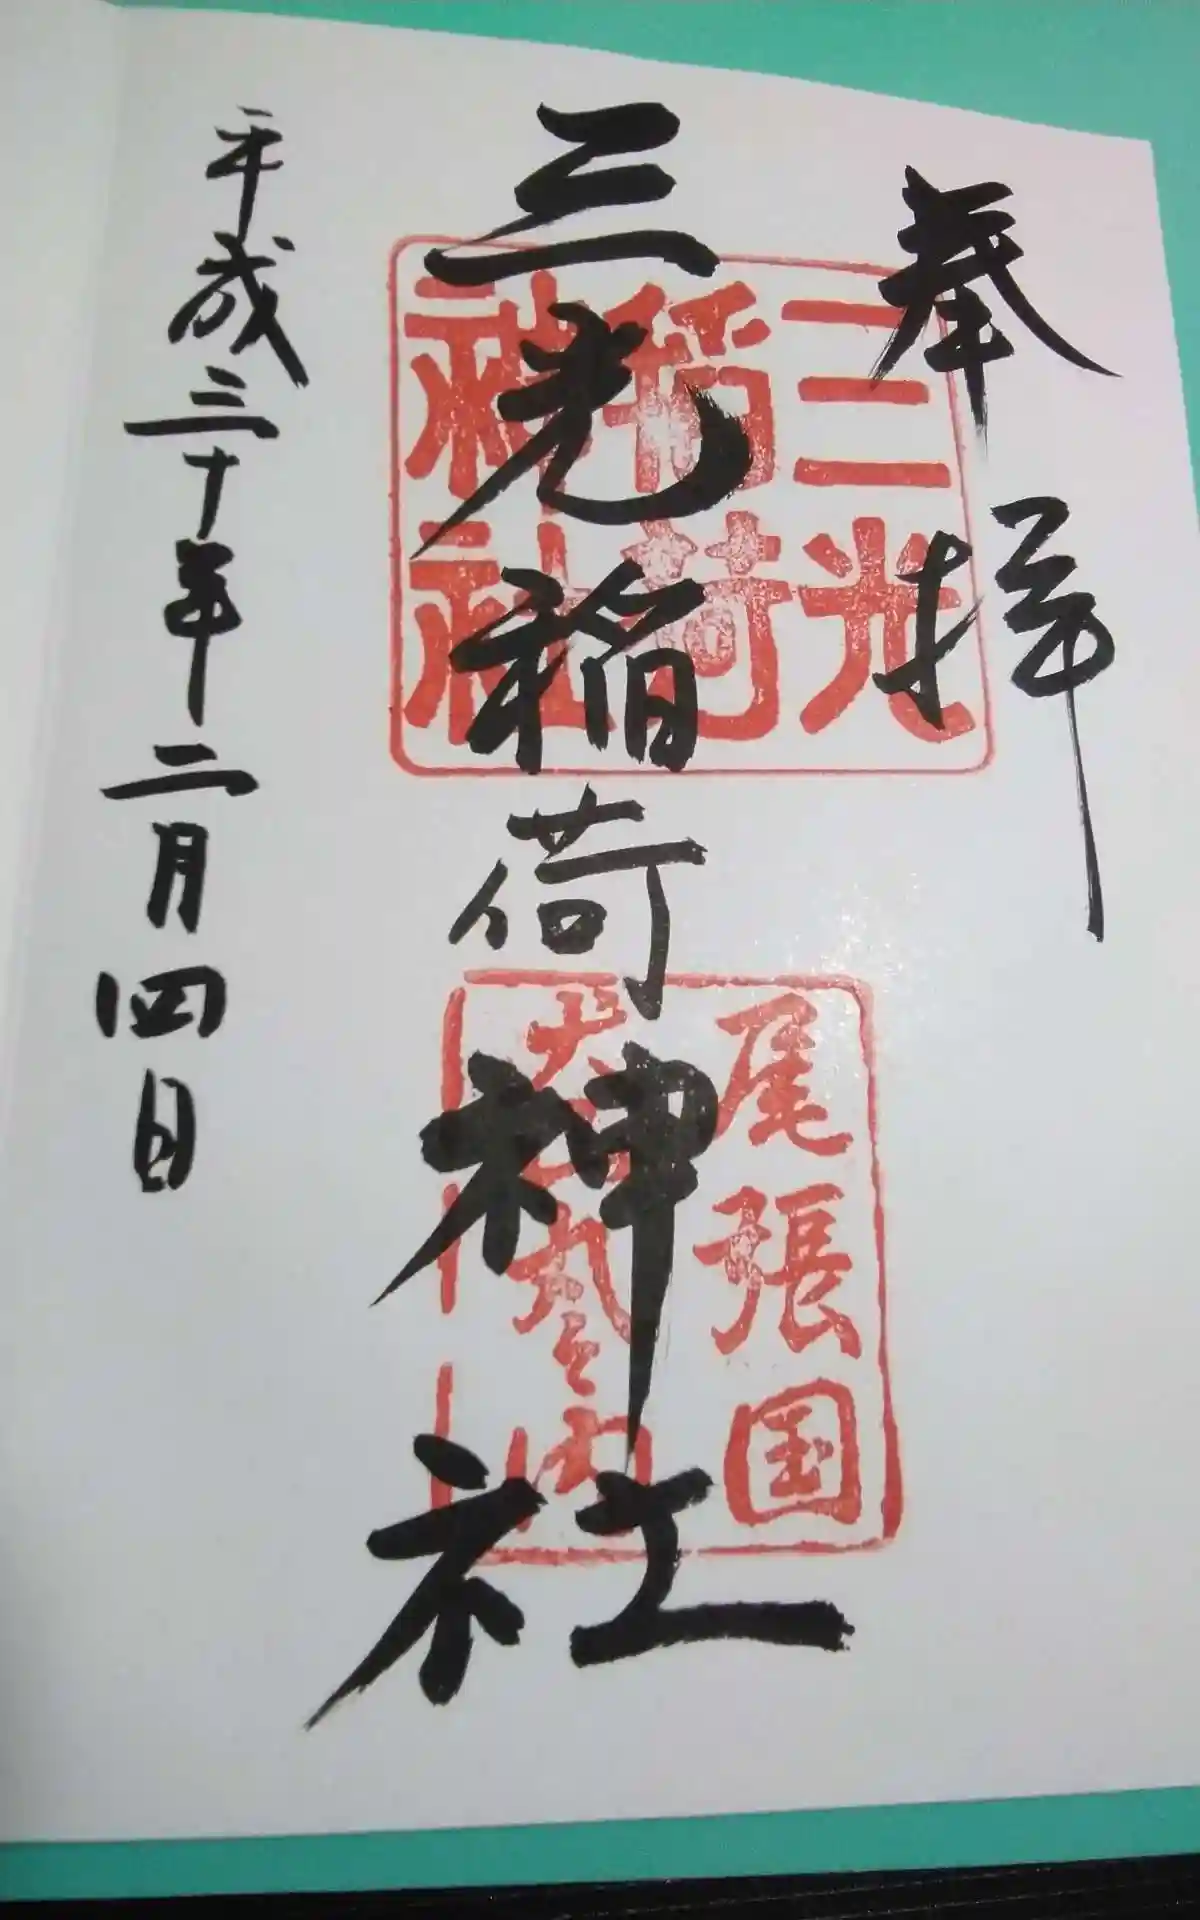 奉拝
三光稲荷神社
平成三十年二月四日
三光
稲荷
神社
尾張国
犬山丸之内